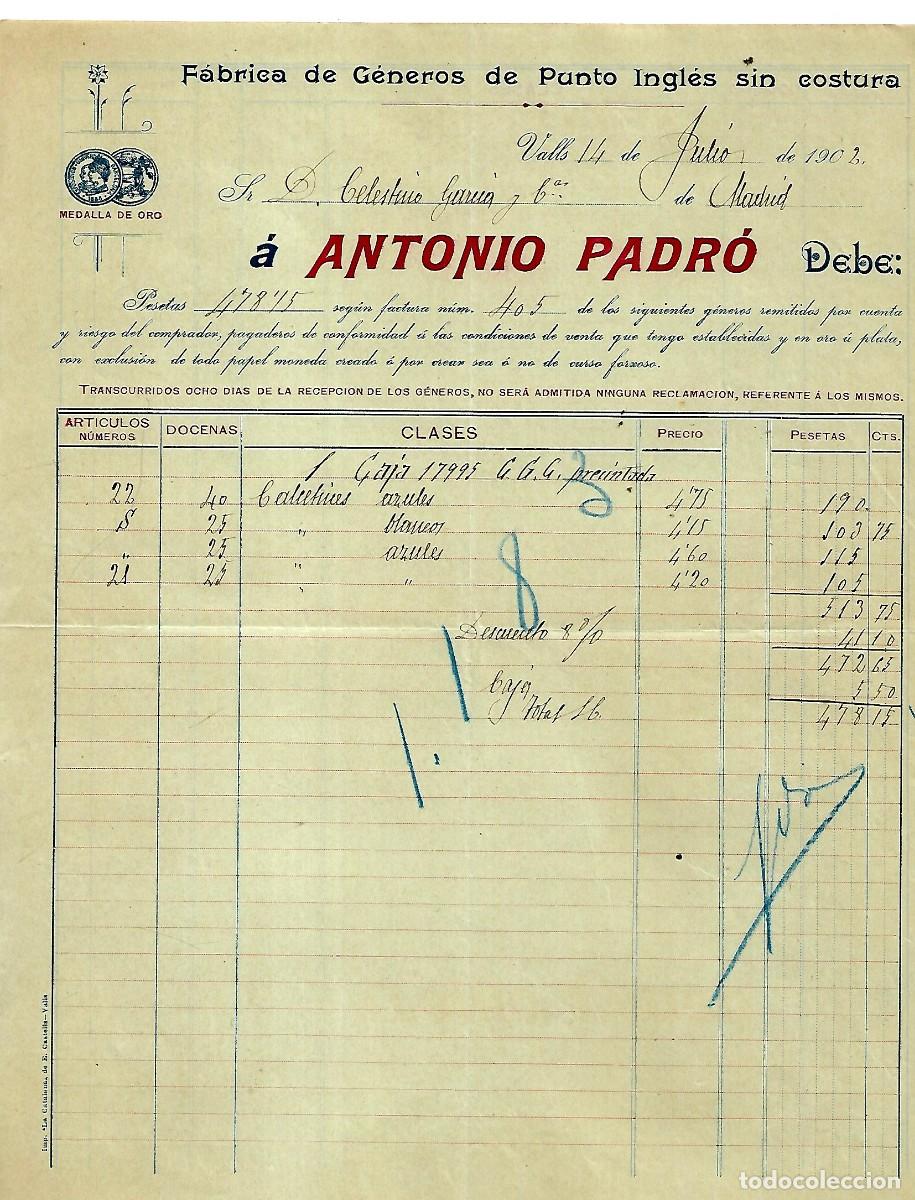 Fábrica de Géneros de Punto Inglés sin costura
Valls 14 de Julio de 1902.
MEDALLA DE ORO
Sr D. Celestino García y Cªˢ de Madrid
á ANTONIO PADRÓ Debe:
Pesetas 478'15 según factura núm. 405 de los siguientes géneros remitidos por cuenta
y riesgo del comprador, pagaderos de conformidad á las condiciones de venta que tengo establecidas y en oro ú plata,
con exclusión de todo papel moneda creado ó por crear sea ó no de curso forzoso.
TRANSCURRIDOS OCHO DIAS DE LA RECEPCION DE LOS GÉNEROS, NO SERÁ ADMITIDA NINGUNA RECLAMACION, REFERENTE Á LOS MISMOS.
ARTICULOS NÚMEROS DOCENAS CLASES PRECIO PESETAS CTS.
1 Caja 17995 G.G.G. precintada
22 40 Calcetines azules 4'75 190
S 25 " blancos 4'15 103 75
" 25 azules 4'60 115
21 25 " " 4'20 105
513 75
Descuento 8 % 41 10
472 65
Caja 5 50
Total 478 15
3
8
1.1
Imp. "La Catalana, de E. Castells—Valls
todocoleccion